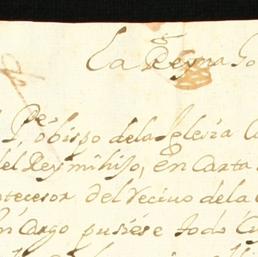 La Reyna Go
R. Pe. obispo de la Iglesia C
del Rey mi hijo, en Carta
antecesor del Vecino de la
en Cargo pusiese todo Cu